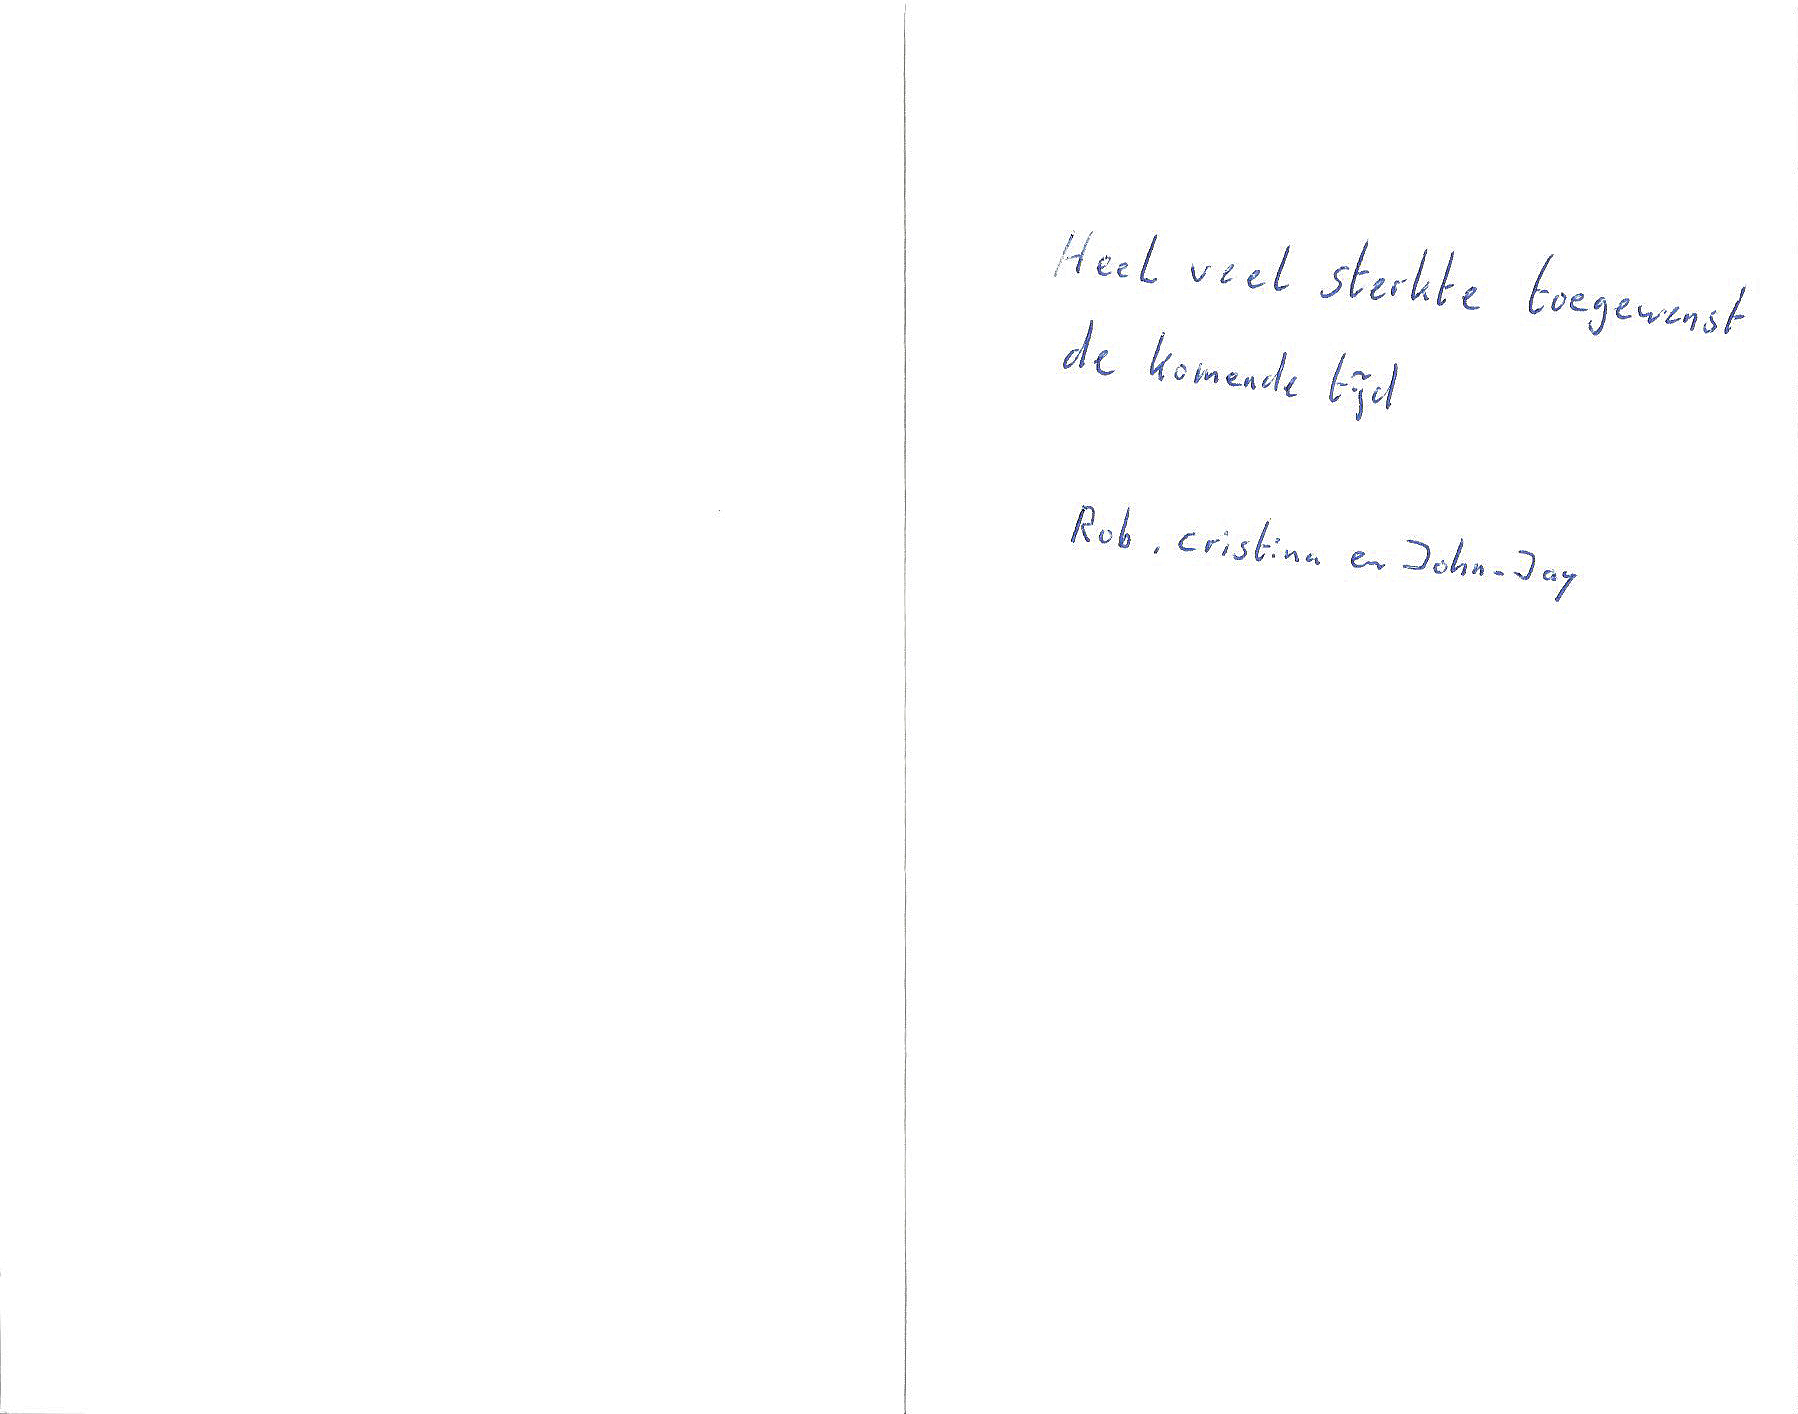 Heel veel sterkte toegewenst
de komende tijd
Rob, cristina en John-Jay